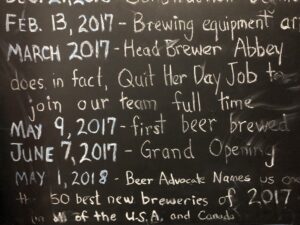 FEB. 13, 2017 - Brewing equipment ar
MARCH 2017 - Head Brewer Abbey
does, in fact, Quit Her Day Job to
join our team full time
MAY 9, 2017 - first beer brewed
JUNE 7, 2017 - Grand Opening
MAY 1, 2018 - Beer Advocate Names us on
the 50 best new breweries of 2017
(in all of the U.S.A, and Canada)